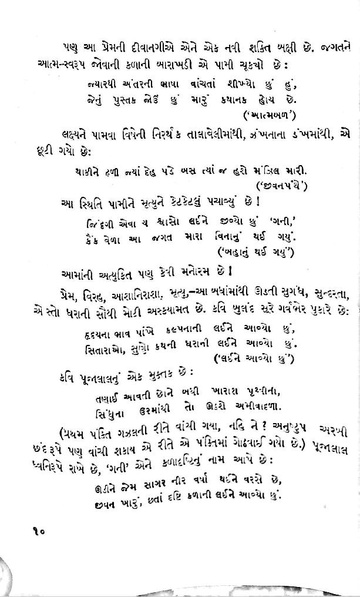 પણ આ પ્રેમની દીવાનગીએ એને એક નવી શક્તિ બક્ષી છે. જગતને
આત્મ-સ્વરૂપ જોવાની કળાની બારાખડી એ પામી ચૂક્યો છે :
જ્યારથી અંતરની ભાષા વાંચતાં શીખ્યો છું હું,
જેનું પુસ્તક જોઉં છું મારું કથાનક હોય છે.
('આત્મબળ')
લક્ષ્યને પામવા વિષેની નિરર્થક તાલાવેલીમાંથી, ઝંખનાના ડંખમાંથી, એ
છૂટી ગયો છે:
થાકીને ઢળી જ્યાં દેહ પડે બસ ત્યાં જ હશે મંઝિલ મારી.
('જીવનપંથે')
આ સ્થિતિ પામીને મૃત્યુને કેટકેટલું પચાવ્યું છે !
જિંદગી એવા ય શ્વાસો લઈને જીવ્યો છું 'ગની,'
કૈંક વેળા આ જગત મારા વિનાનું થઈ ગયું.
('બહાનું થઈ ગયું')
આમાંની અત્યુક્તિ પણ કેવી મનોરમ છે !
પ્રેમ, વિરહ, આશાનિરાશા, મૃત્યુ,–આ બધાંમાંથી ઊઠતી સુગંધ, સુન્દરતા,
એ સ્તો ધરાની સૌથી મોટી અસ્ક્યામત છે. કવિ બુલંદ સૂરે ગર્વભેર પુકારે છે:
હૃદયના ભાવ પાંખે કલ્પનાની લઈને આવ્યો છું,
સિતારાઓ, સુણો કથની ધરાની લઈને આવ્યો છું.
('લઈને આવ્યો છું')
કવિ પૂજાલાલનું એક મુક્તક છે :
તણાઈ આવતી છોને બધી ખારાશ પૃથ્વીના,
સિંધુના ઉરમાંથી તો ઊઠશે અમીવાદળી.
(પ્રથમ પંક્તિ ગઝલની રીતે વાંચી ગયા, નહિ ને ? અનુષ્ટુપ અરબી
છંદરૂપે પણ વાંચી શકાય એ રીતે એ પંક્તિમાં ગોઠવાઈ ગયો છે.) પૂજાલાલ
ધ્વનિરૂપે રાખે છે, 'ગની' એને કળાદૃષ્ટિનું નામ આપે છે :
ઊડીને જેમ સાગર નીર વર્ષા થઈને વરસે છે,
જીવન ખારું, છતાં દૃષ્ટિ કળાની લઈને આવ્યો છું.
૧૦